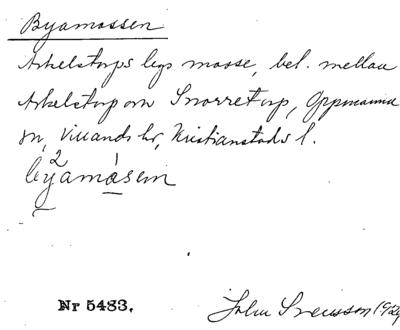 Byamossen
Arkelstorps bys mosse, bel. mellan
Arkelstorp och Snorretorp, Oppmanna
sn, Villands hr, Kristianstads l.
by²amåsen
Nr 5483.
John Svensson